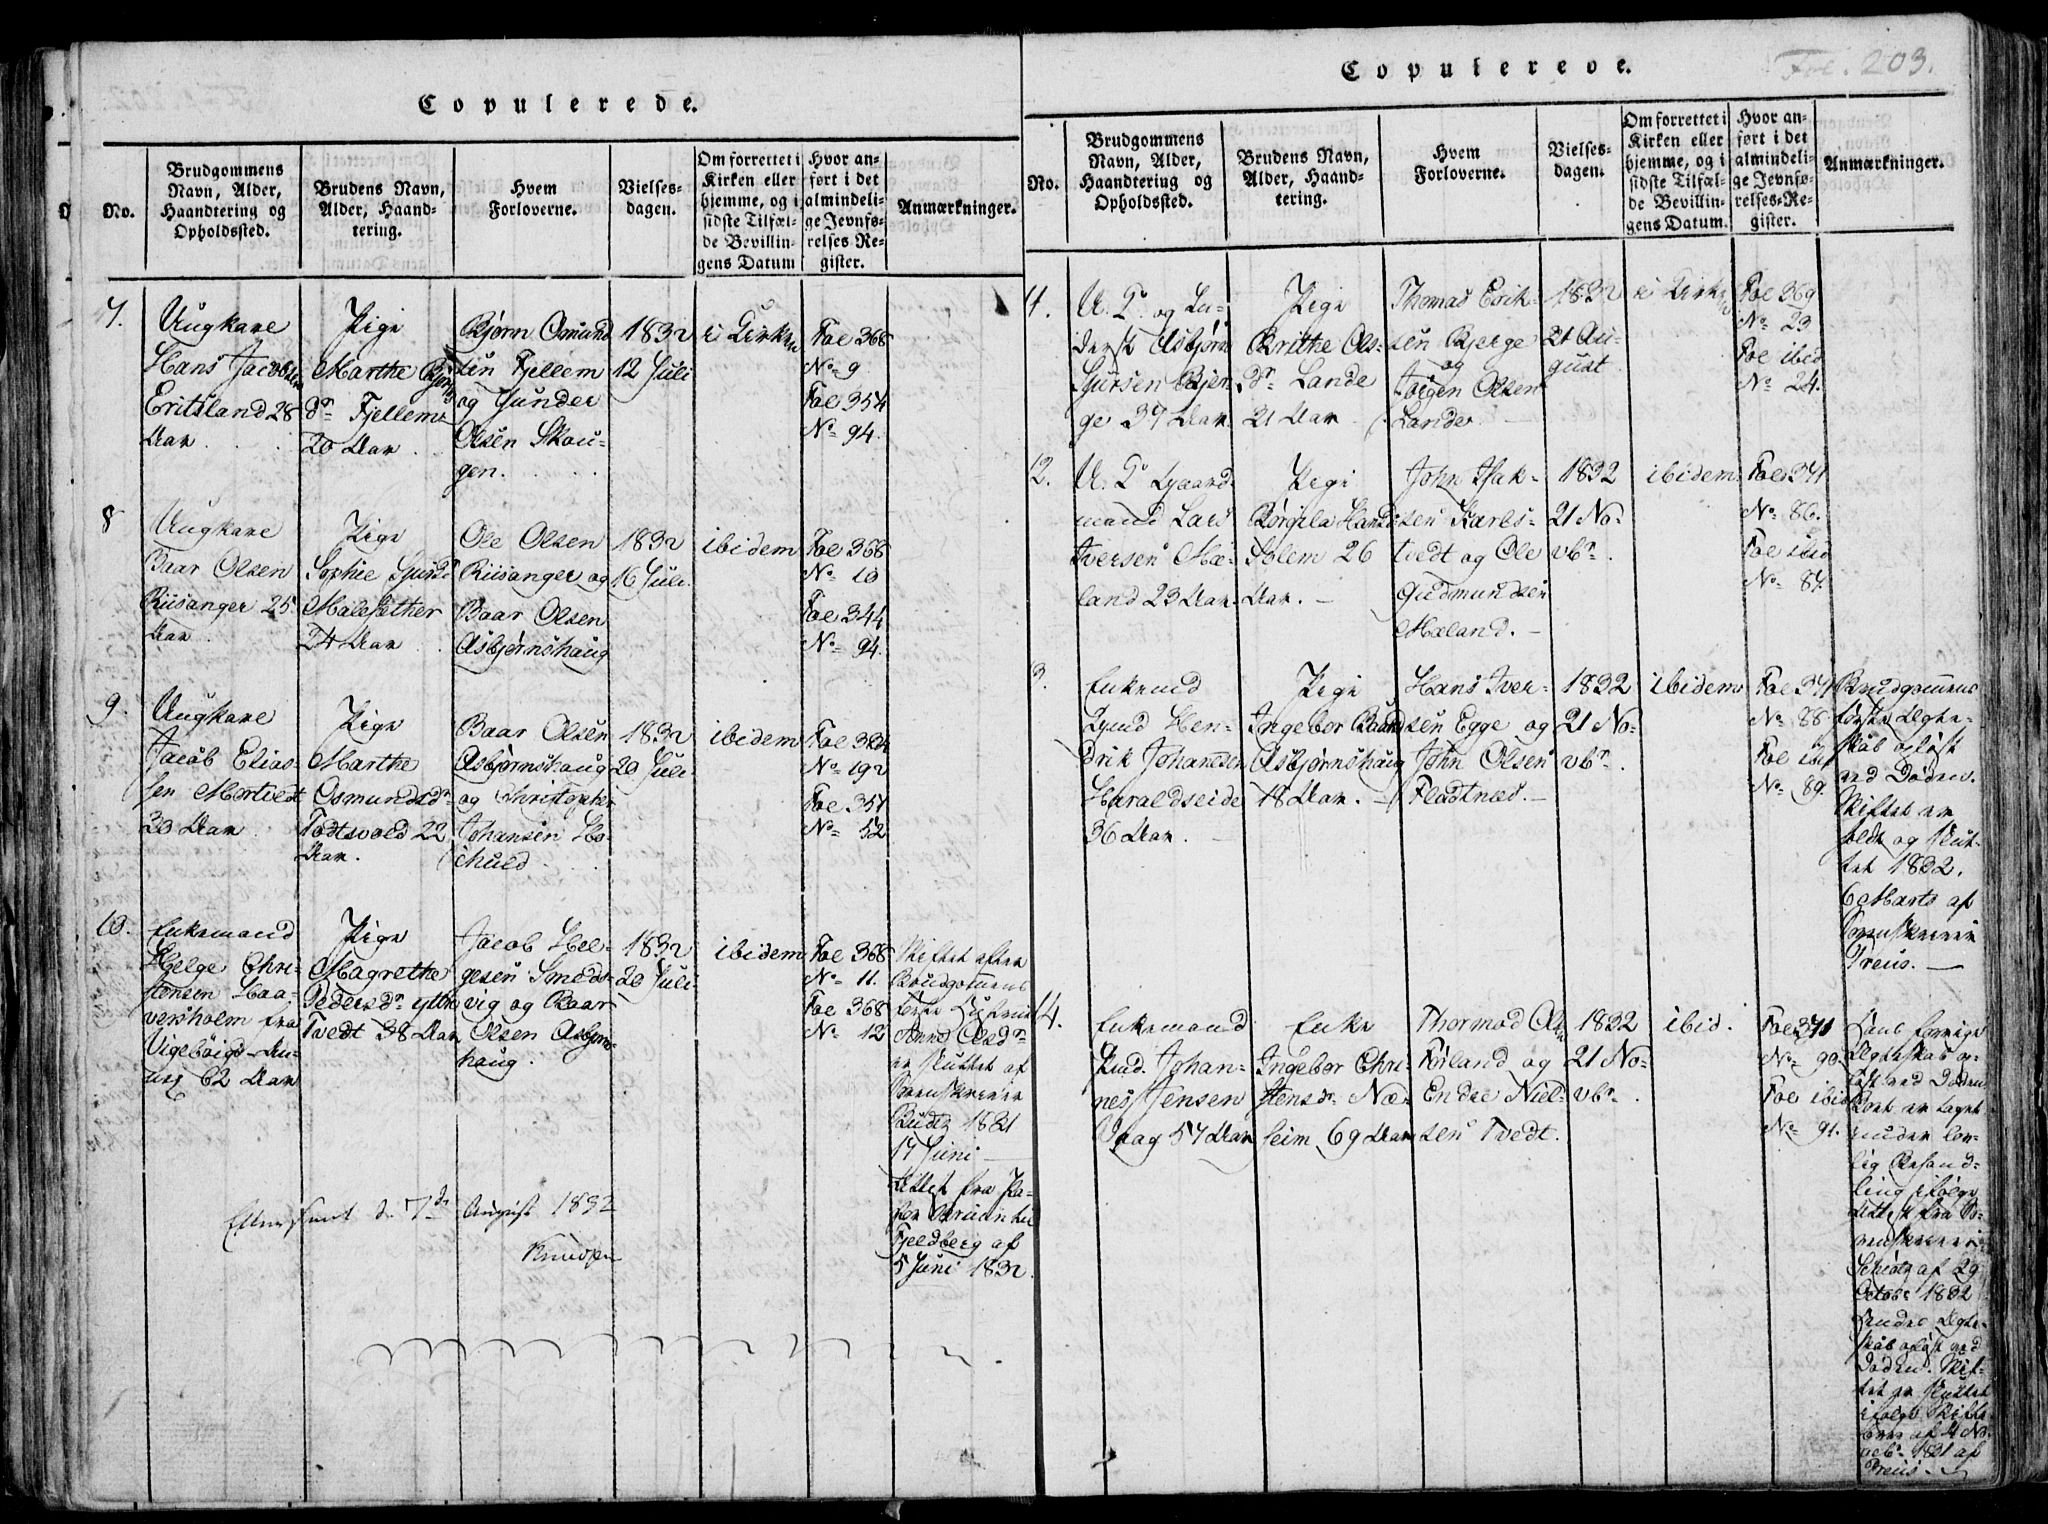 Copulerede.
No.
Brudgommens
Navn, Alder,
Haandtering og
Opholdssted.
Brudens Navn,
Alder, Haand-
tering.
Hvem
Forloverne.
Vielses-
dagen.
Om forrettet i
Kirken eller
hjemme, og i
sidste Tilfæl-
de Bevillin-
gens Datum
Hvor an-
ført i det
almindeli-
ge Jevnfø-
relses-Re-
gister.
Anmærkninger.
7.
Ungkarl
Hans Jacobsen
Eritsland 28
Aar.
Pige
Marthe Bjørns
Dr Fjellem
20 Aar.
Bjørn Osmund
sen Fjellem
og Gunder
Olsen Skou-
gen.
1832
12 Juli
i Kirken
Fol 368
No 9
Fol 354
No 94.
8
Ungkarl
Baar Olsen
Riisanger 25
Aar.
Pige
Sophie Sjursd
Malesæther
24 Aar
Ole Olsen
Riisanger og
Baar Olsen
Asbjørnshaug
1832
16 Juli.
ibidem
Fol 368
No 10
Fol 344
No 94.
9.
Ungkarl
Jacob Elias-
sen Mortvedt
30 Aar
Pige
Marthe
Osmundsdr
Todtsvold 22
Aar.
Baar Olsen
Asbjørnshaug
og Christopher
Johansen Ho-
1832
20 Juli
ibidem
Fol 324
No 192
Fol 357
No 52
10.
Enkemand
Helge Chri-
stensen Haa-
versholm fra
Vigebøigd
62 Aar
Pige
Magrethe
Pedersdr
Tvedt 38 Aar
Jacob Hel-
gesen Smeds-
vig og Baar
Olsen Asbjørns-
haug.
1832
20 Juli.
ibidem
Fol 368
No 11.
Fol 368
No 12
Skiftet efter
Brudgommens
første Hustrue
Anne Olsdr
er sluttet af
Sorenskriver
Budtz 1821
17 Juni
Attest fra Pa-
stor Bruun til
Fjeldberg af
5 Juni 1832.
Efterseet d. 7de August 1832
Knudsen
Copulerede.
Fol. 203.
No.
Brudgommens
Navn, Alder,
Haandtering og
Opholdssted.
Brudens Navn,
Alder, Haand-
tering.
Hvem
Forloverne.
Vielses-
dagen.
Om forrettet i
Kirken eller
hjemme, og i
sidste Tilfæl-
de Bevillin-
gens Datum.
Hvor an-
ført i det
almindeli-
ge Jevnfø-
relses-Re-
gister.
Anmærkninger.
11.
U. K. og
Asbjørn
Sjursen Bjer-
ge 37 Aar.
Pige
Brithe Ols-
Dr Lande
21 Aar
Thomas Erik-
sen Bjerge
og
Torgen Olsen
Lande.
1832
21 Au-
gust
i Kirken
Fol 369
No 23
Fol ibid
No 24.
12.
U. K. Gaard-
mand Lars
Iversen Mæ-
land 23 Aar.
Pige
Børgila Hansd
Solem 26
Aar.
John Isak-
sen Skarts-
tvedt og Ole
Gudmundsen
Mæland.
1832
21 No-
vbr.
ibidem
Fol 371
No 86.
Fol ibid
No 87.
3.
Enkemd
Lyud Hen-
drik Johannesen
Haraldseide
36 Aar.
Pige
Ingebor Baard
Asbjørnshaug
18 Aar.
Hans Iver-
sen Egge og
John Olsen
Fladtnæs.
1832
21 No-
vbr.
ibidem
Fol 371
No 88
Fol ibid
No 89.
Brudgommens
første Ægte-
skab opløst
ved Døden.
Skiftet er
holdt og slut-
tet 1832.
6 Marts af
Sorenskriver
Preus.
14.
Enkemand
Knud Johan-
nes Jensen
Vaag 57 Aar
Enke
Ingebor Chri-
stensdr Næ-
seim 69 Aar
Thormod Ols
Førland og
Endre Niel-
sen Tvedt.
1832
21 No-
vbr.
ibid.
Fol 371
No 90.
Fol ibid
No 91.
Hans forrige
Ægteskab op-
løst ved Døden
Boet er taget
under lov-
lig Behand-
ling ifølge
Attest fra So-
renskriver
Schiøtz af 29
Octobr 1832
Hendes Ægte-
skab opløst ved
Døden. Skif-
tet er sluttet
ifølge Skifte-
brev af 4 No-
vebr 1821 af
Preus.